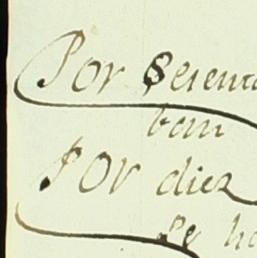 Por Seient
ban
Por diez
Se ha